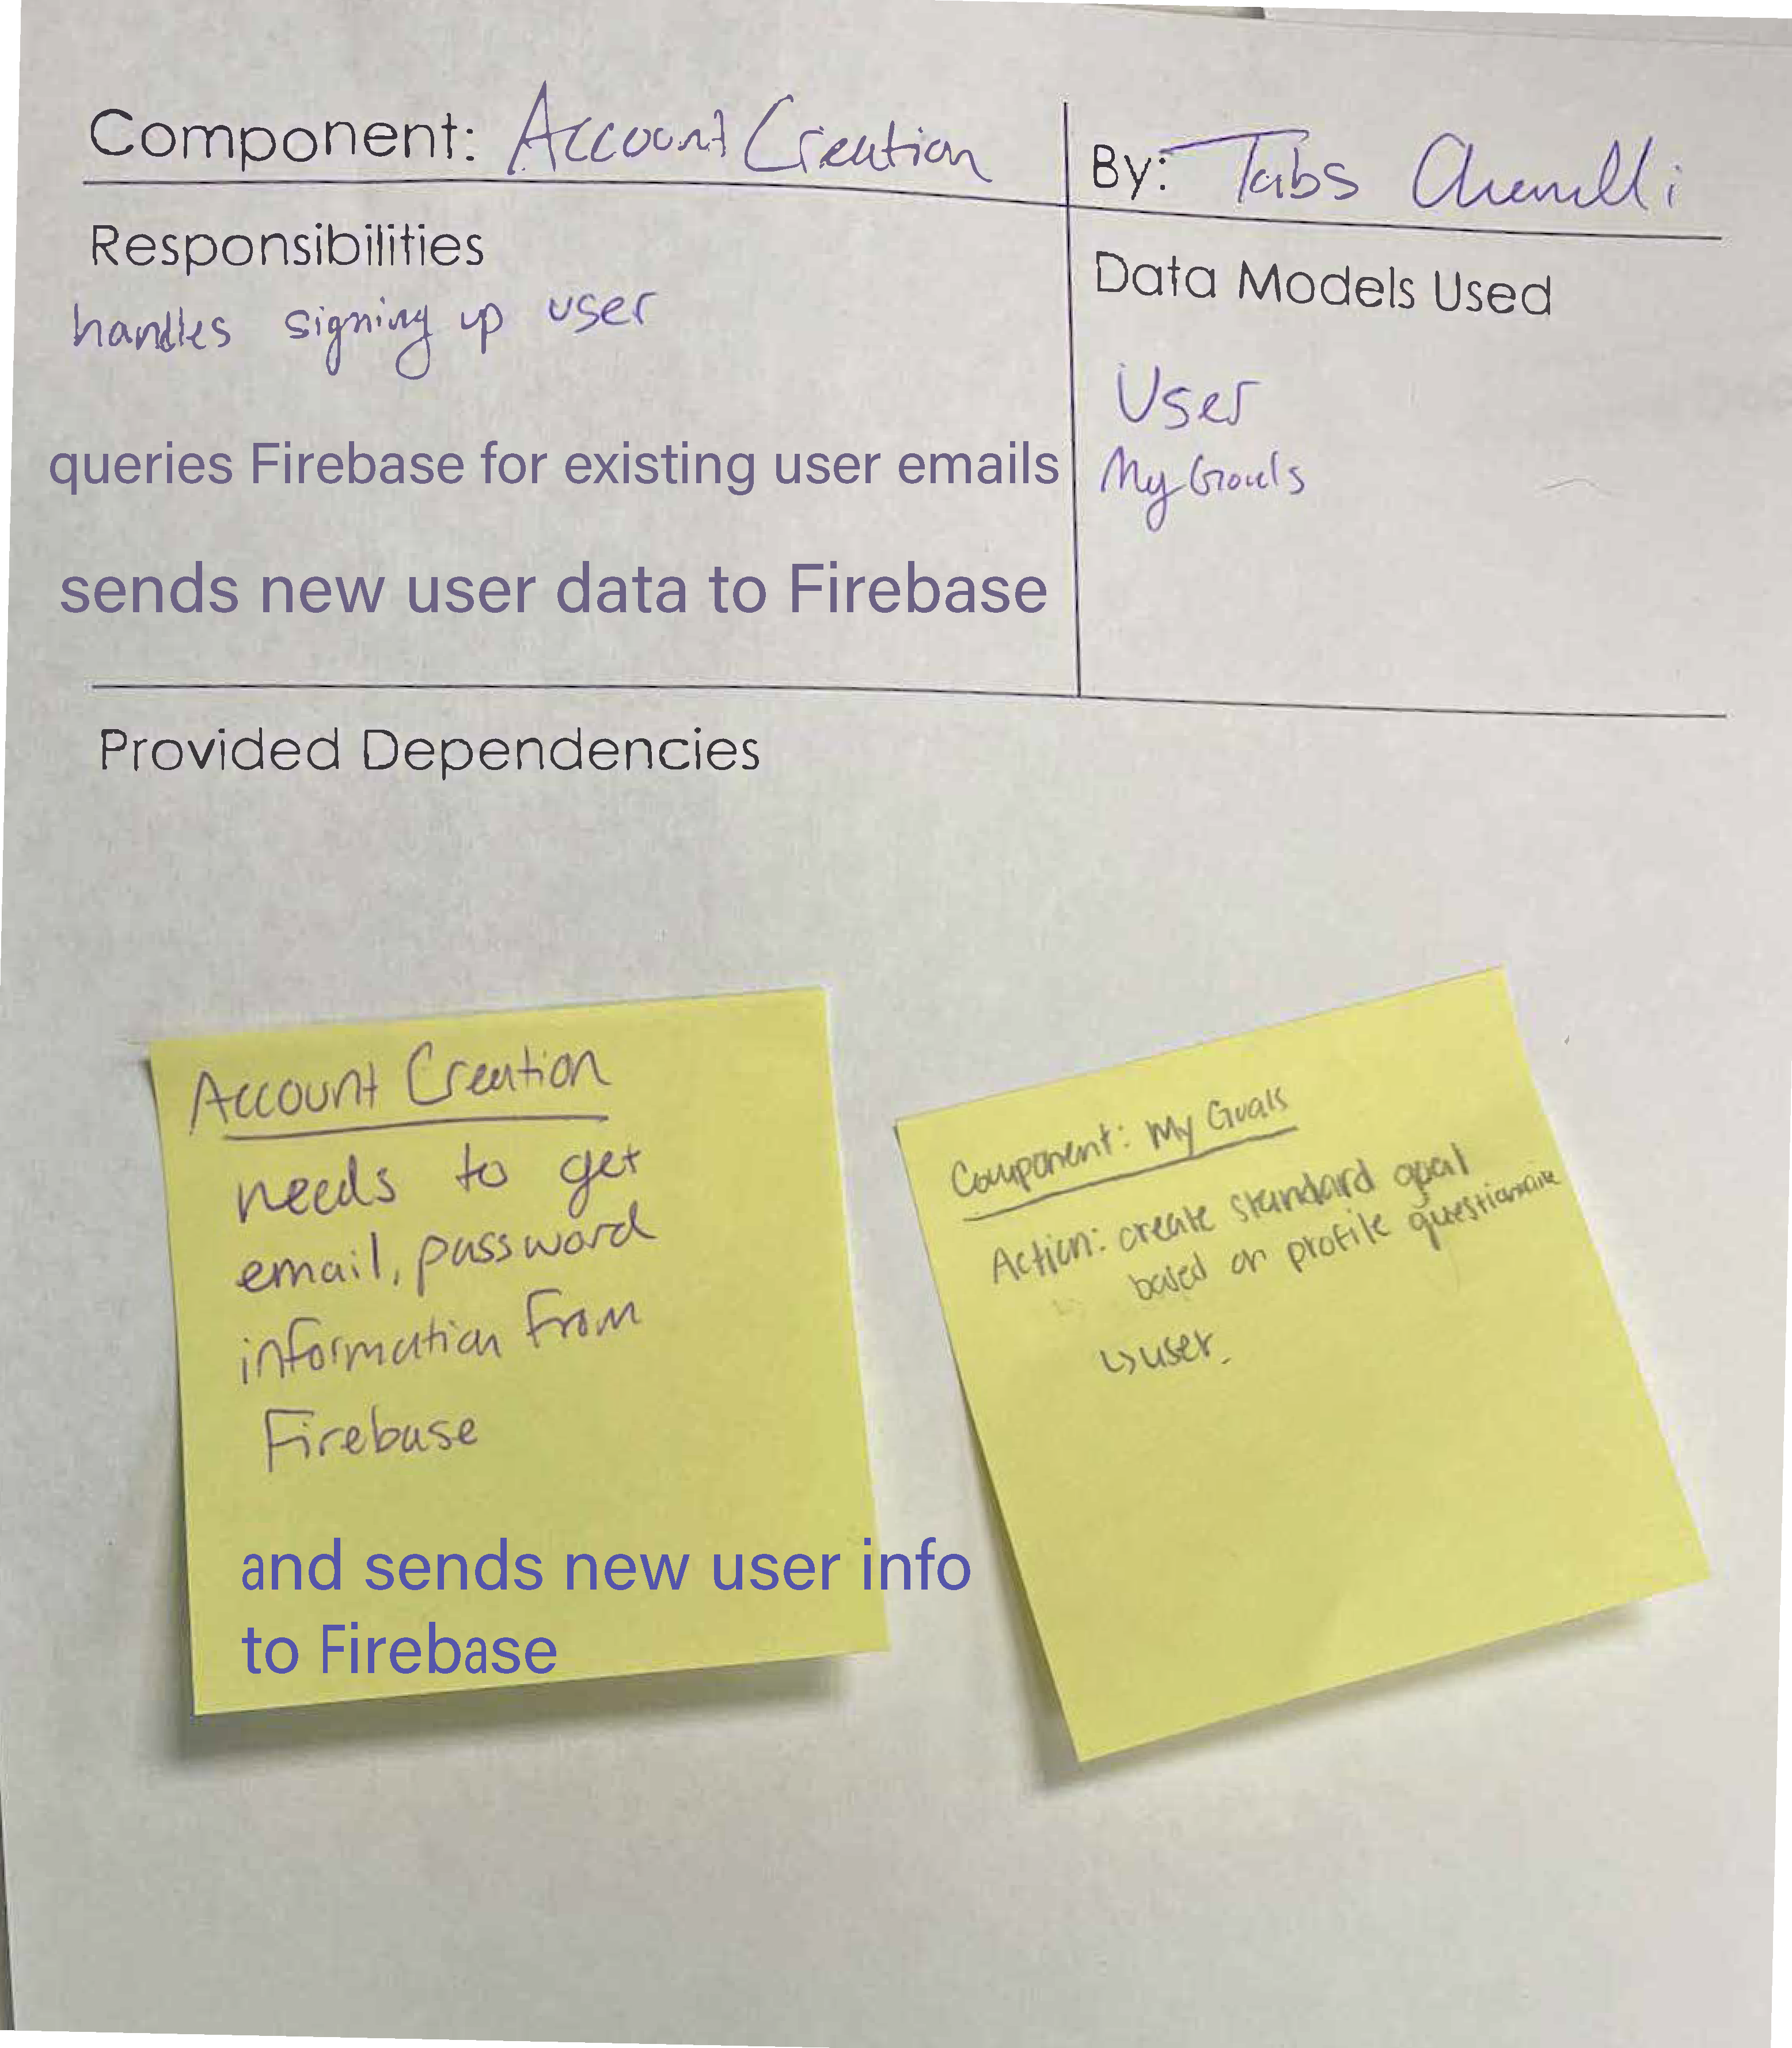 Component: Account Creation
By: Tabs
Responsibilities
handles signing up user
queries Firebase for existing user emails
sends new user data to Firebase
Data Models Used
User
My Goals
Provided Dependencies
Account Creation
needs to get
email, password
information from
Firebase
and sends new user info
to Firebase
Component: My Goals
Action: create standard goal
based on profile questionnaire
↳ user.